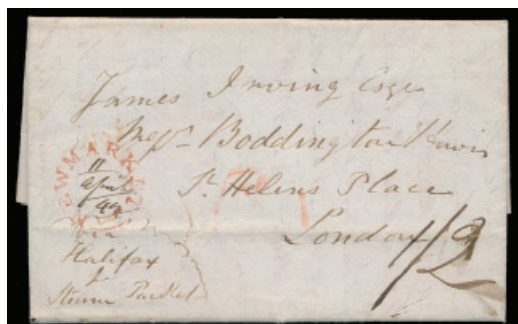 James Irving Esqr
Messrs Boddington
St Helens Place
London
1/2
NEWMARKET
11
April
Via
Halifax
Steam Packet